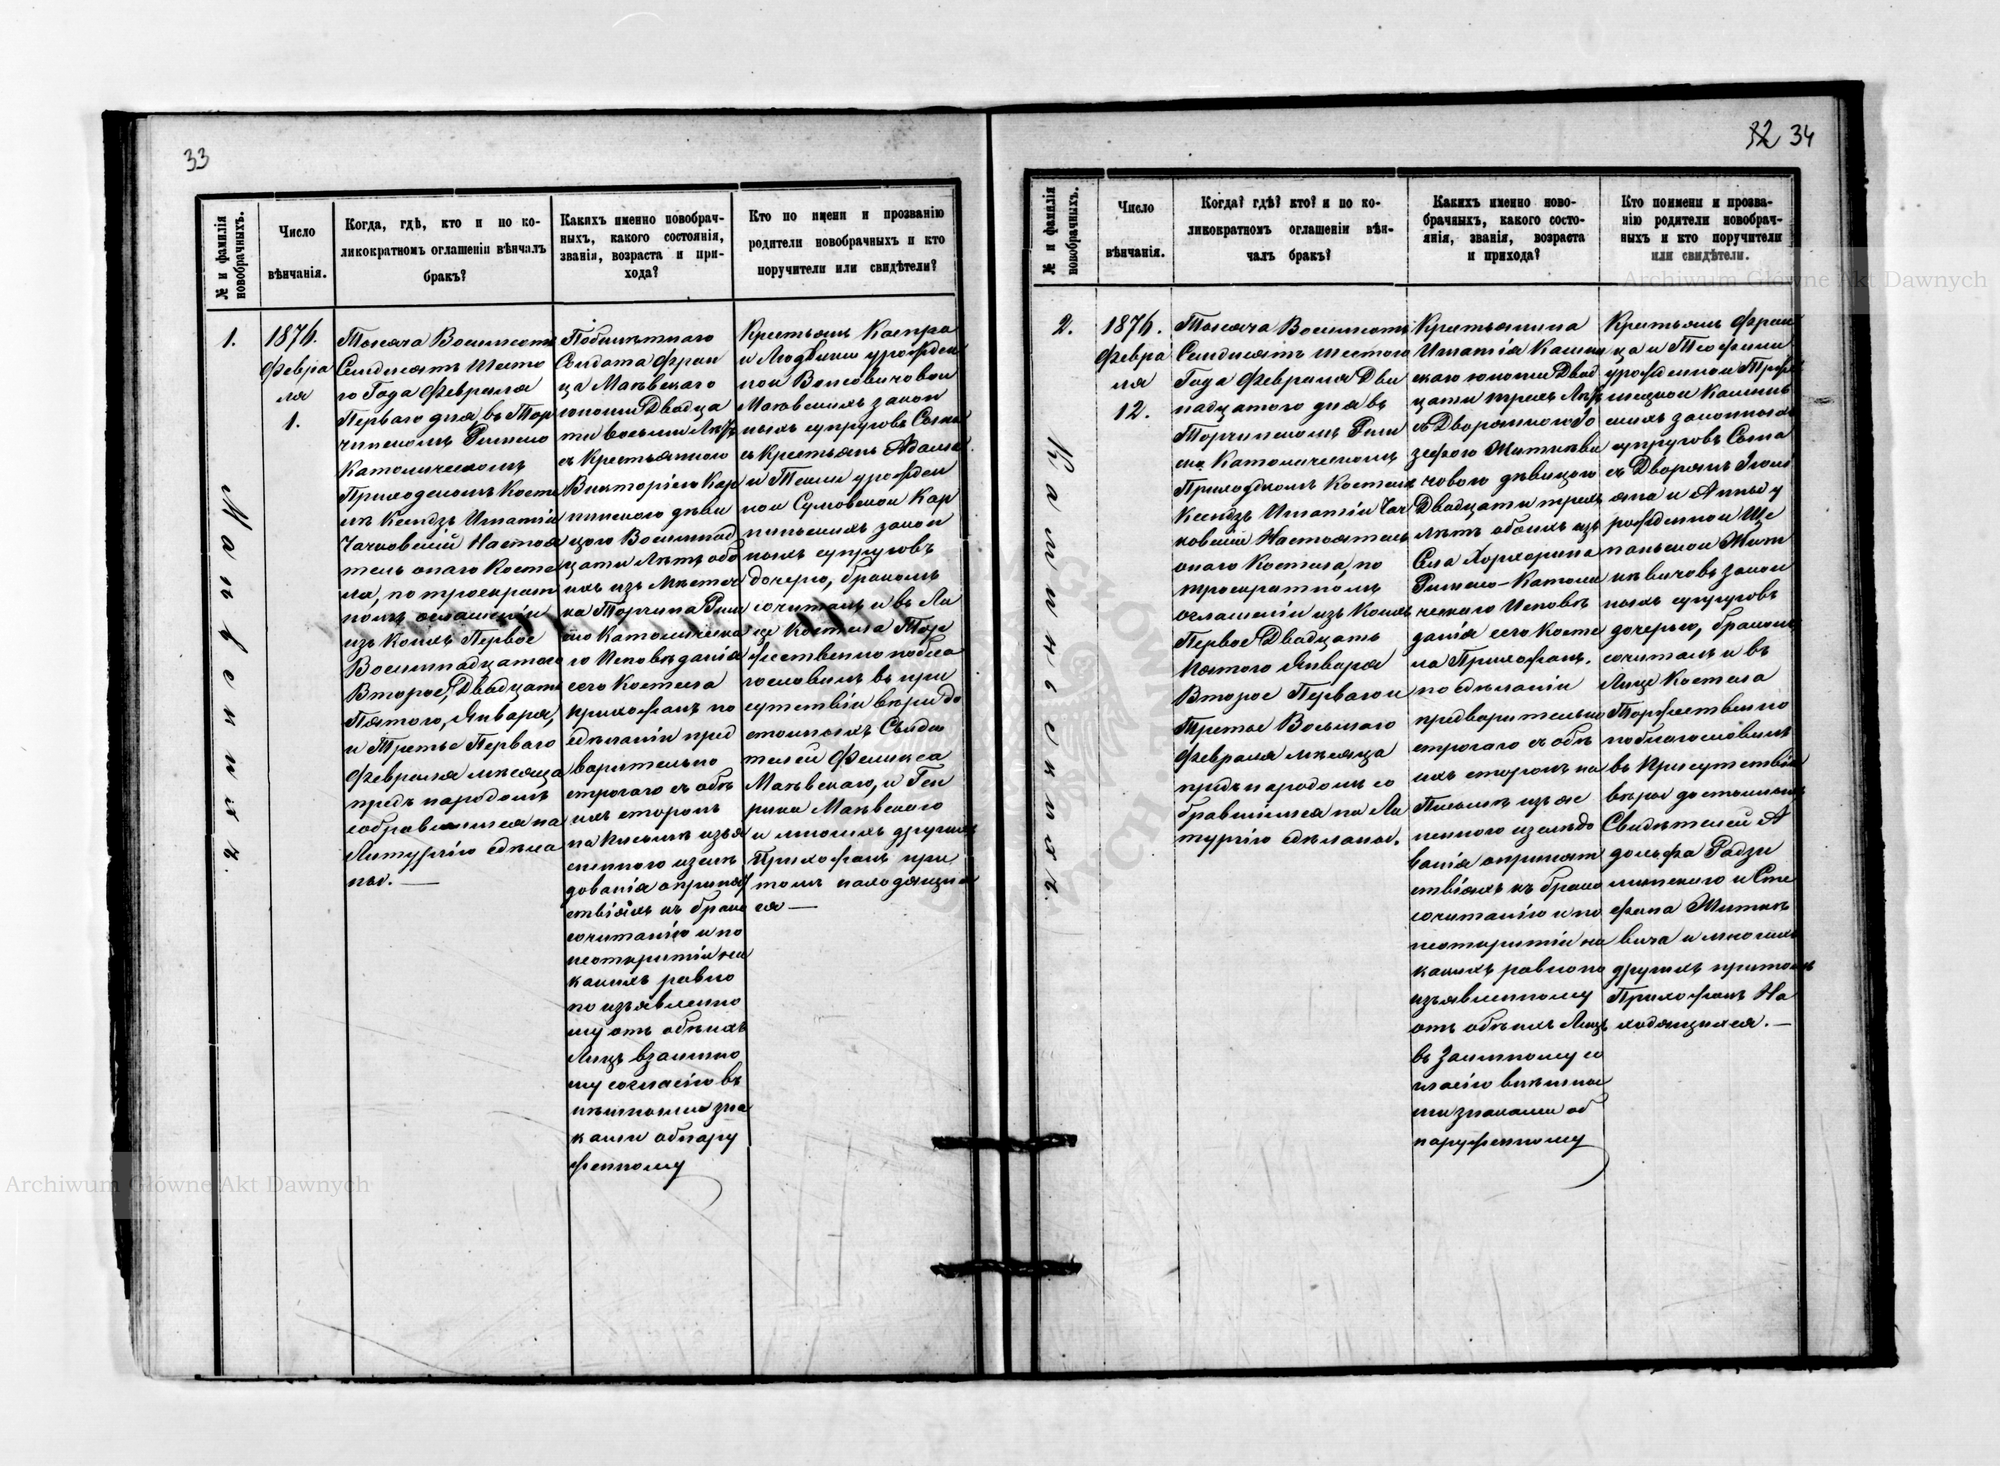 33
№ и фамилія новобрачныхъ.
Число вѣнчанія.
Когда, гдѣ, кто и по ко-
ликократномъ оглашеніи вѣнчалъ
бракъ?
Какихъ именно новобрач-
ныхъ, какого состоянія,
званія, возраста и при-
хода?
Кто по имени и прозванію
родители новобрачныхъ и кто
поручители или свидѣтели?
1.
1876.
Февра
ля
1.
Тысяча Восемьсотъ
Семдисятъ Шесто
го Года Февраля
Перваго дня въ Тор
чинскомъ Римско
Католическомъ
Приходскомъ Косте
лѣ Ксендзъ Игнатій
Чачковскій Настоя
тель онаго Косте
ла, по троекрат
номъ оглашеніи
изъ коихъ Первое
Восемнадцатого
Второе, Двадцать
Пятого, Января,
и Третье Перваго
Февраля мѣсяца
предъ народомъ
собравшимся на
Литургію сдѣла
ны. —
Побилетнаго
Солдата Фран
ца
юношу Двадца
ти восьми Лѣтъ
съ Крестьянкою
Викторіею Кар
пинскою дѣви
цою Восемнад
цати Лѣтъ обо
ихъ изъ Мѣстеч
ка Торчина Рим
ско Католическа
го Исповѣданія
сего Костела
прихожанъ по
сдѣланіи пред
варительно
строгаго съ обѣ
ихъ сторонъ
на письмѣ изъя
сненнаго изслѣ
дованія о препят
ствіяхъ къ брако
сочитанію и по
неоткрытіи ни
какихъ равно
по изъявленно
му отъ обѣихъ
Лицъ взаимно
му согласію в
нѣшними зна
ками обнару
женному
Крестьянъ Каспра
и Людвики урожден
ной
законныхъ супруговъ Сына
съ Крестьянъ Адама
и Теклі урожден
ной
Карпинскихъ закон
ныхъ супруговъ
дочерею, бракомъ
сочиталъ и въ Ли
це Костела Тор
жественно побла
гословилъ въ при
сутствіи вѣри до
стойныхъ Свиде
телей Феликса
и Ген
рика
и многихъ другихъ
Прихожанъ при
томъ находящих
ся —
32 34
№ и фамилія новобрачныхъ.
Число вѣнчанія.
Когда? гдѣ? кто? и по ко-
ликократномъ оглашеніи вѣн-
чалъ бракъ?
Какихъ именно ново-
брачныхъ, какого состо-
янія, званія, возраста
и прихода?
Кто поимени и прозва-
нію родители новобрач-
ныхъ и кто поручители
или свидѣтели.
2.
1876.
Февра
ля
12.
Тысяча Восемьсотъ
Семдисятъ шестого
Года Февраля Две
надцатого дня въ
Торчинскомъ Рим
ско Католическомъ
Приходскомъ Костелѣ
Ксендзъ Игнатій Чач
ковскій Настоятель
онаго Костела, по
троекратномъ
оглашеніи изъ Коихъ
Первое Двадцать
Пятого Января
Второе Перваго и
Третье Восьмаго
Февраля мѣсяца
предъ народомъ со
бравшимся на Ли
тургію сдѣланы.
Крестьянина
Игнатія
юношу Двад
цати трехъ Лѣтъ
съ Дворянкою Ю
зефою
дѣвицею
Двадцати трехъ
лѣтъ обоихъ изъ
Села Хорхорина
Римско-Католи
ческаго Исповѣ
данія сего Косте
ла Прихожан.
по сдѣланіи
предварительно
строгаго съ обѣ
ихъ сторонъ на
Письмѣ изъяс
неннаго изслѣдо
ванія о препят
ствіяхъ къ брако
сочитанію и по
неоткрытіи ни
какихъ равно по
изъявленному
отъ обѣихъ Лицъ
взаимному со
гласію внѣшни
ми знаками об
наруженному
Крестьянъ Фран
ца и Теофили
урожденной
законныхъ
супруговъ Сына
съ Дворянъ Юлі
яна и Анны у
рожденной
закон
ныхъ супруговъ
дочерью, бракомъ
сочиталъ и въ
Лице Костела
Торжественно
поблагословилъ
въ Присутствіи
вѣры достойныхъ
Свидѣтелей А
дольфа Радзи
минскаго и Сте
фана
и многихъ
другихъ притомъ
Прихожанъ На
ходящихся. —
Archiwum Główne Akt Dawnych
Archiwum Główne Akt Dawnych